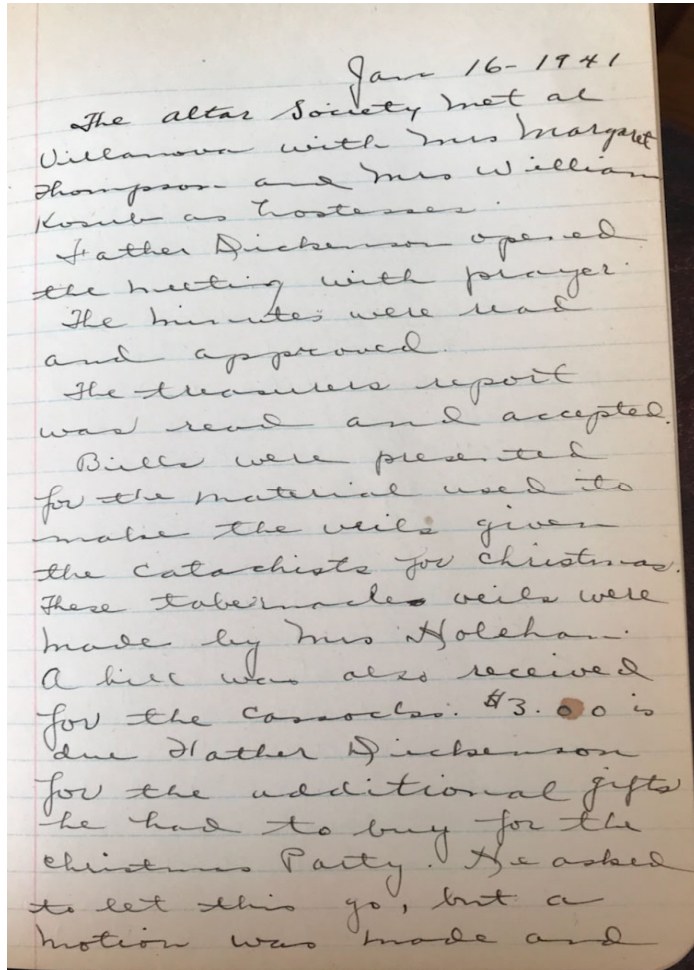 Jan 16-1941
The altar Society met at
Villanova with Mrs Margaret
Thompson and Mrs William
Kosub as hostesses.
Father Dickenson opened
the meeting with prayer.
The minutes were read
and approved.
The treasurers report
was read and accepted.
Bills were presented
for the material used to
make the veils given
the catachists for christmas.
These tabernacle veils were
made by Mrs Holehan.
A bill was also received
for the cassocks. $3.00 is
due Father Dickenson
for the additional gifts
he had to buy for the
christmas Party. He asked
to let this go, but a
motion was made and